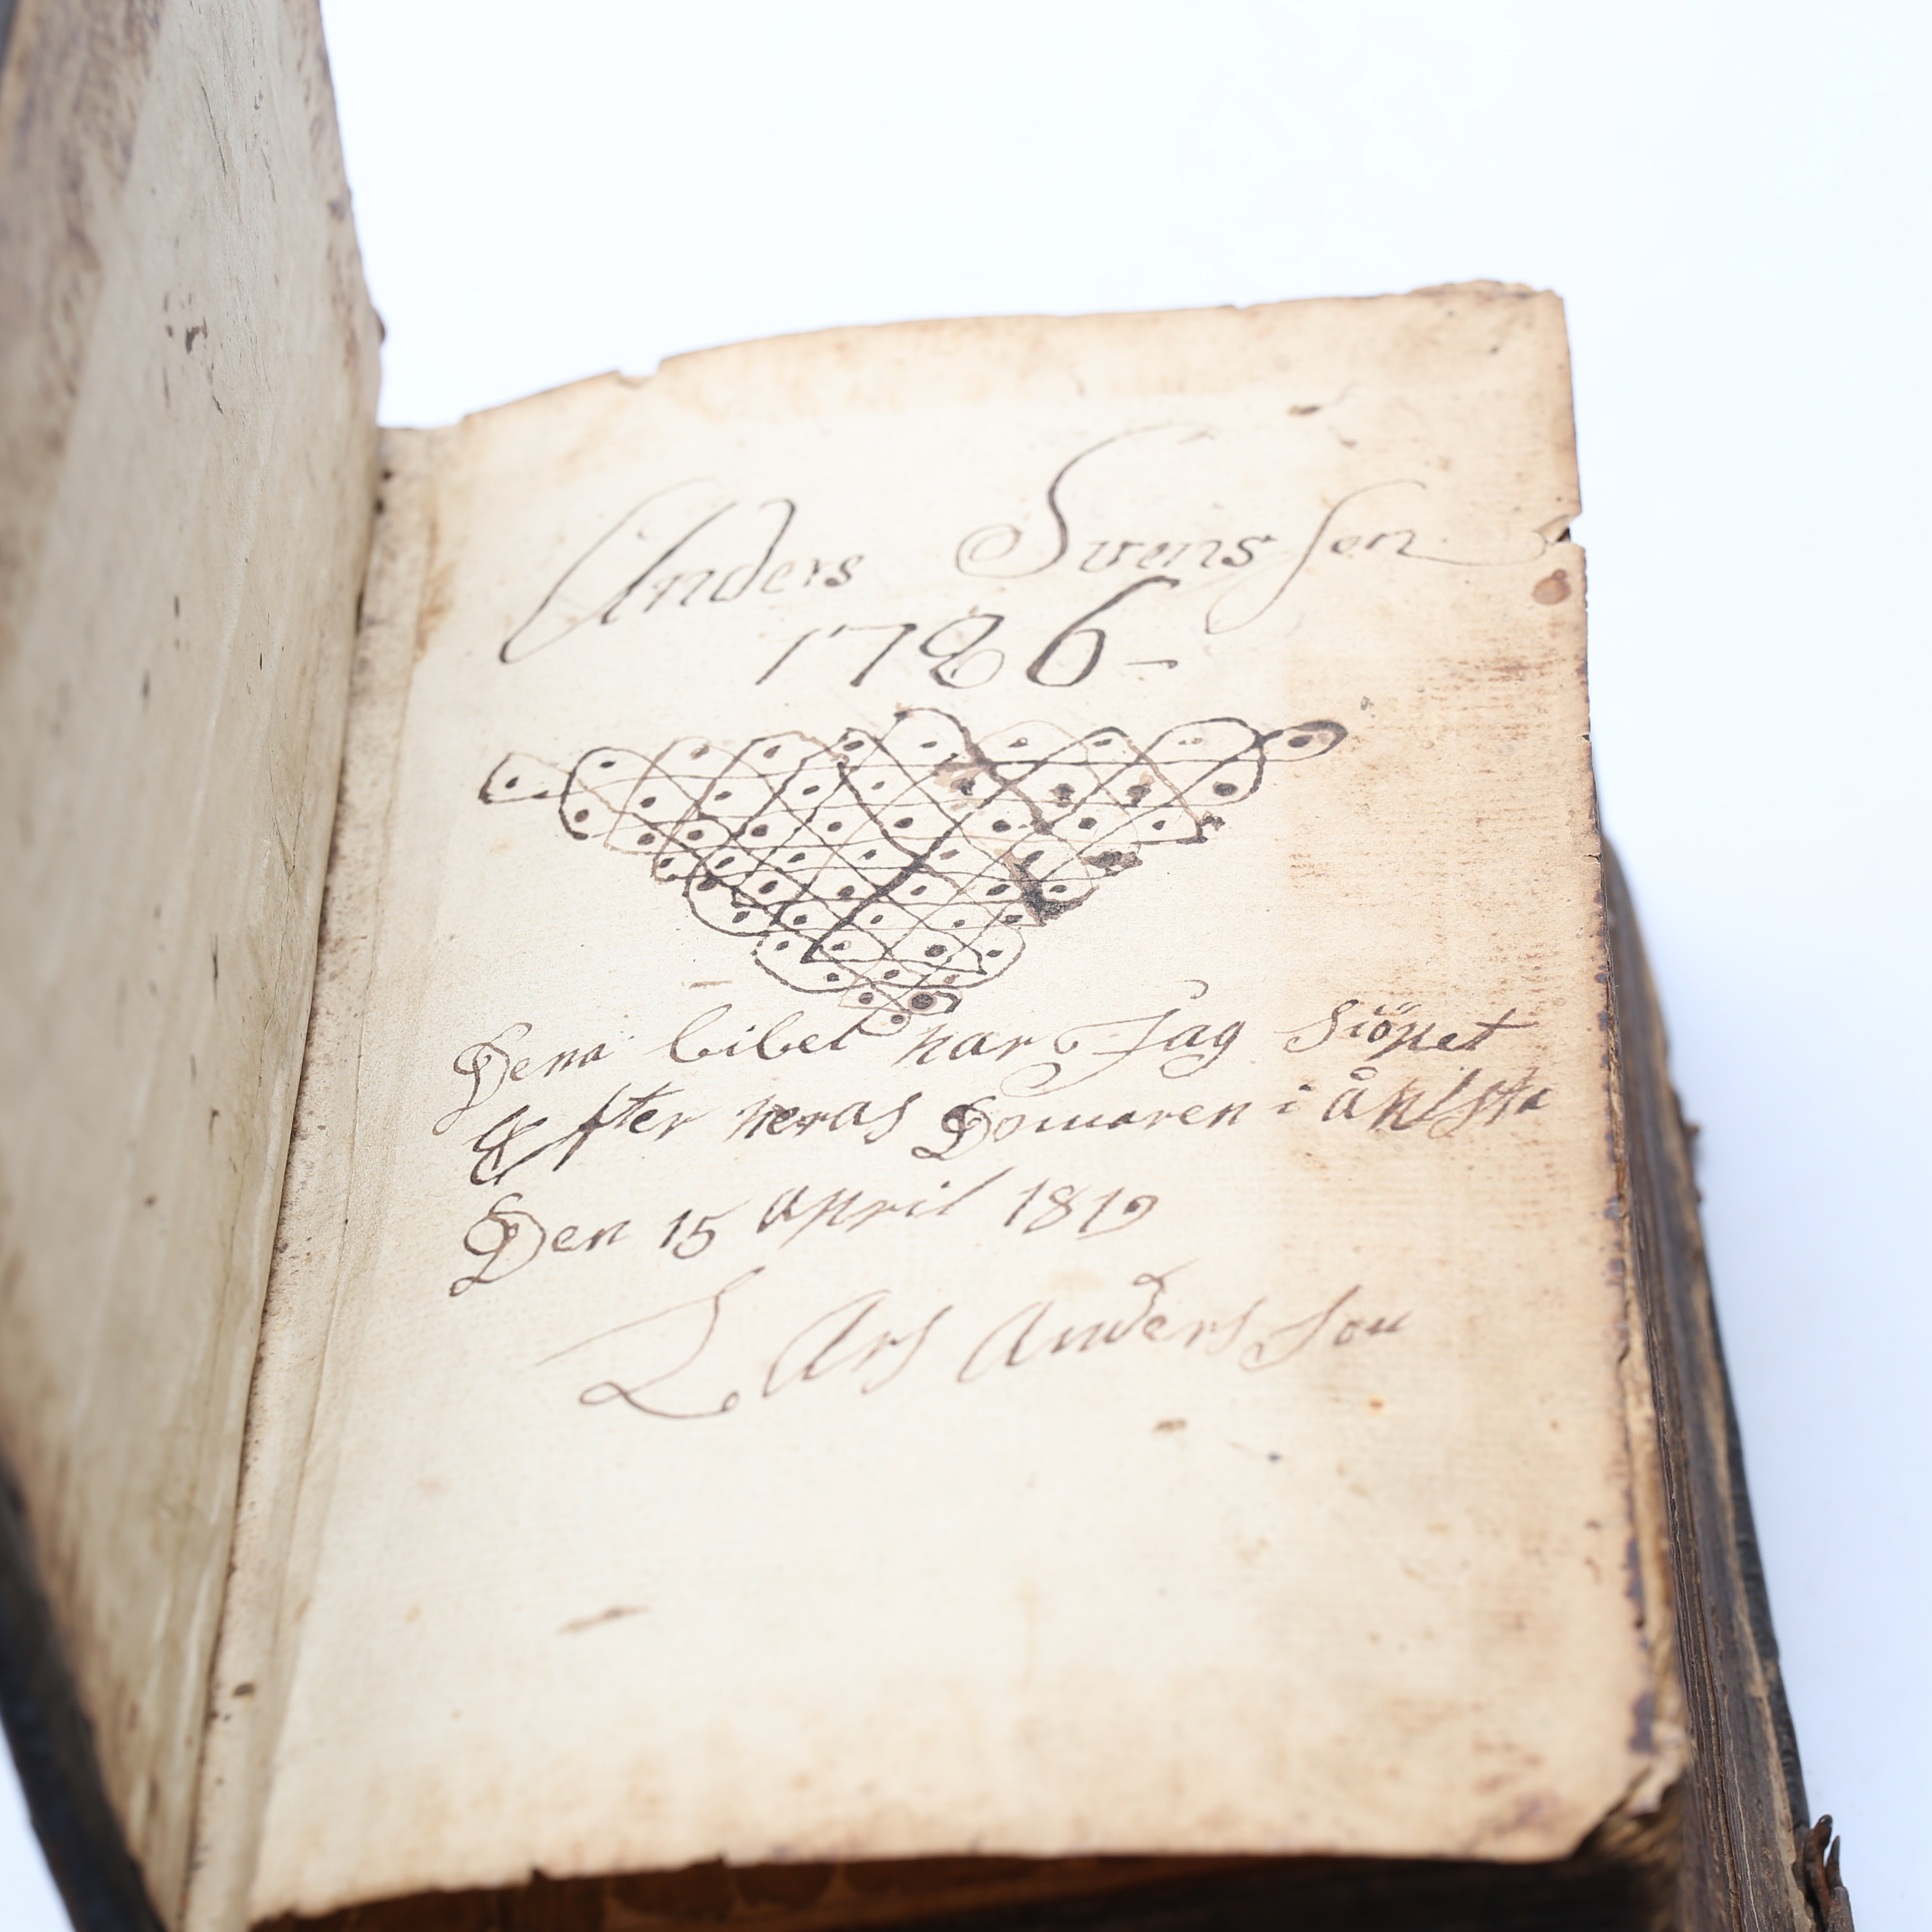 Anders Svensson
1786-
Dena bibel har Jag kiöpet
Efter heras Domaren i
Den 15 April 1819
Lars Andersson